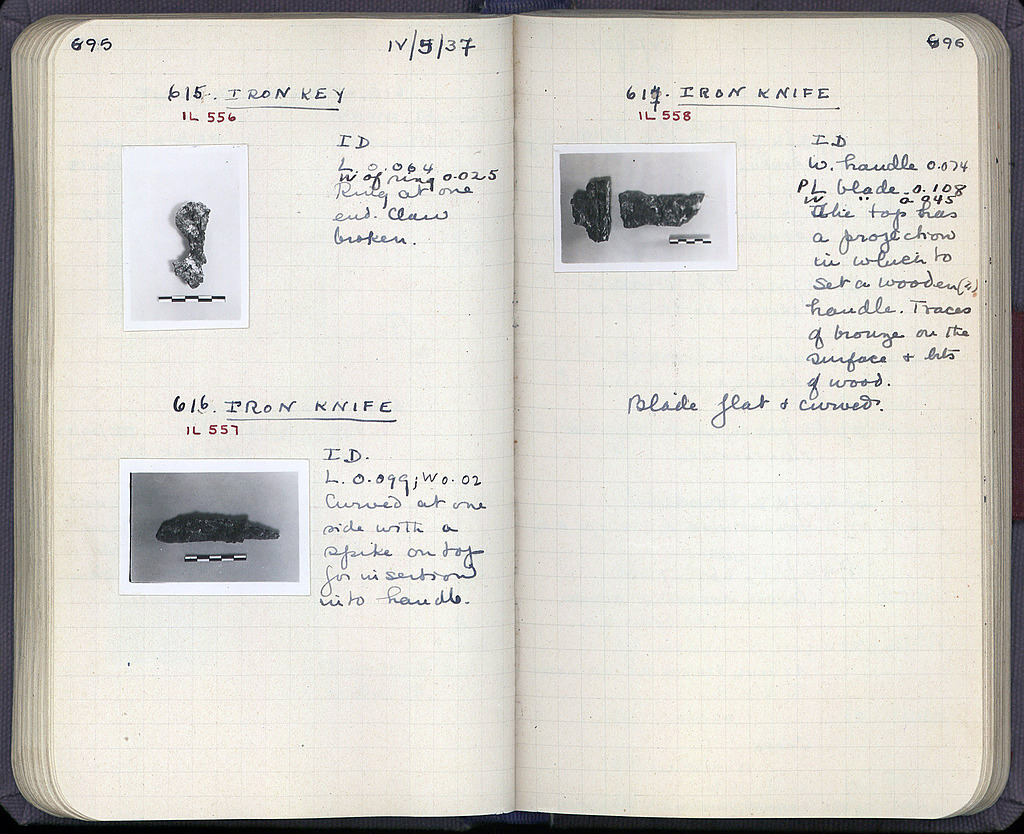 695
IV/5/37
615. IRON KEY
IL 556
ID
L. 0.064
W of ring 0.025
Ring at one
end. Claw
broken.
616. IRON KNIFE
IL 557
ID.
L. 0.099; W 0.02
Curved at one
side with a
spike on top
for insertion
into handle.
696
617. IRON KNIFE
IL 558
ID
W. handle 0.074
PL blade 0.108
W " 0.045
The top has
a projection
in which to
set a wooden (?)
handle. Traces
of bronze on the
surface + bits
of wood.
Blade flat & curved.